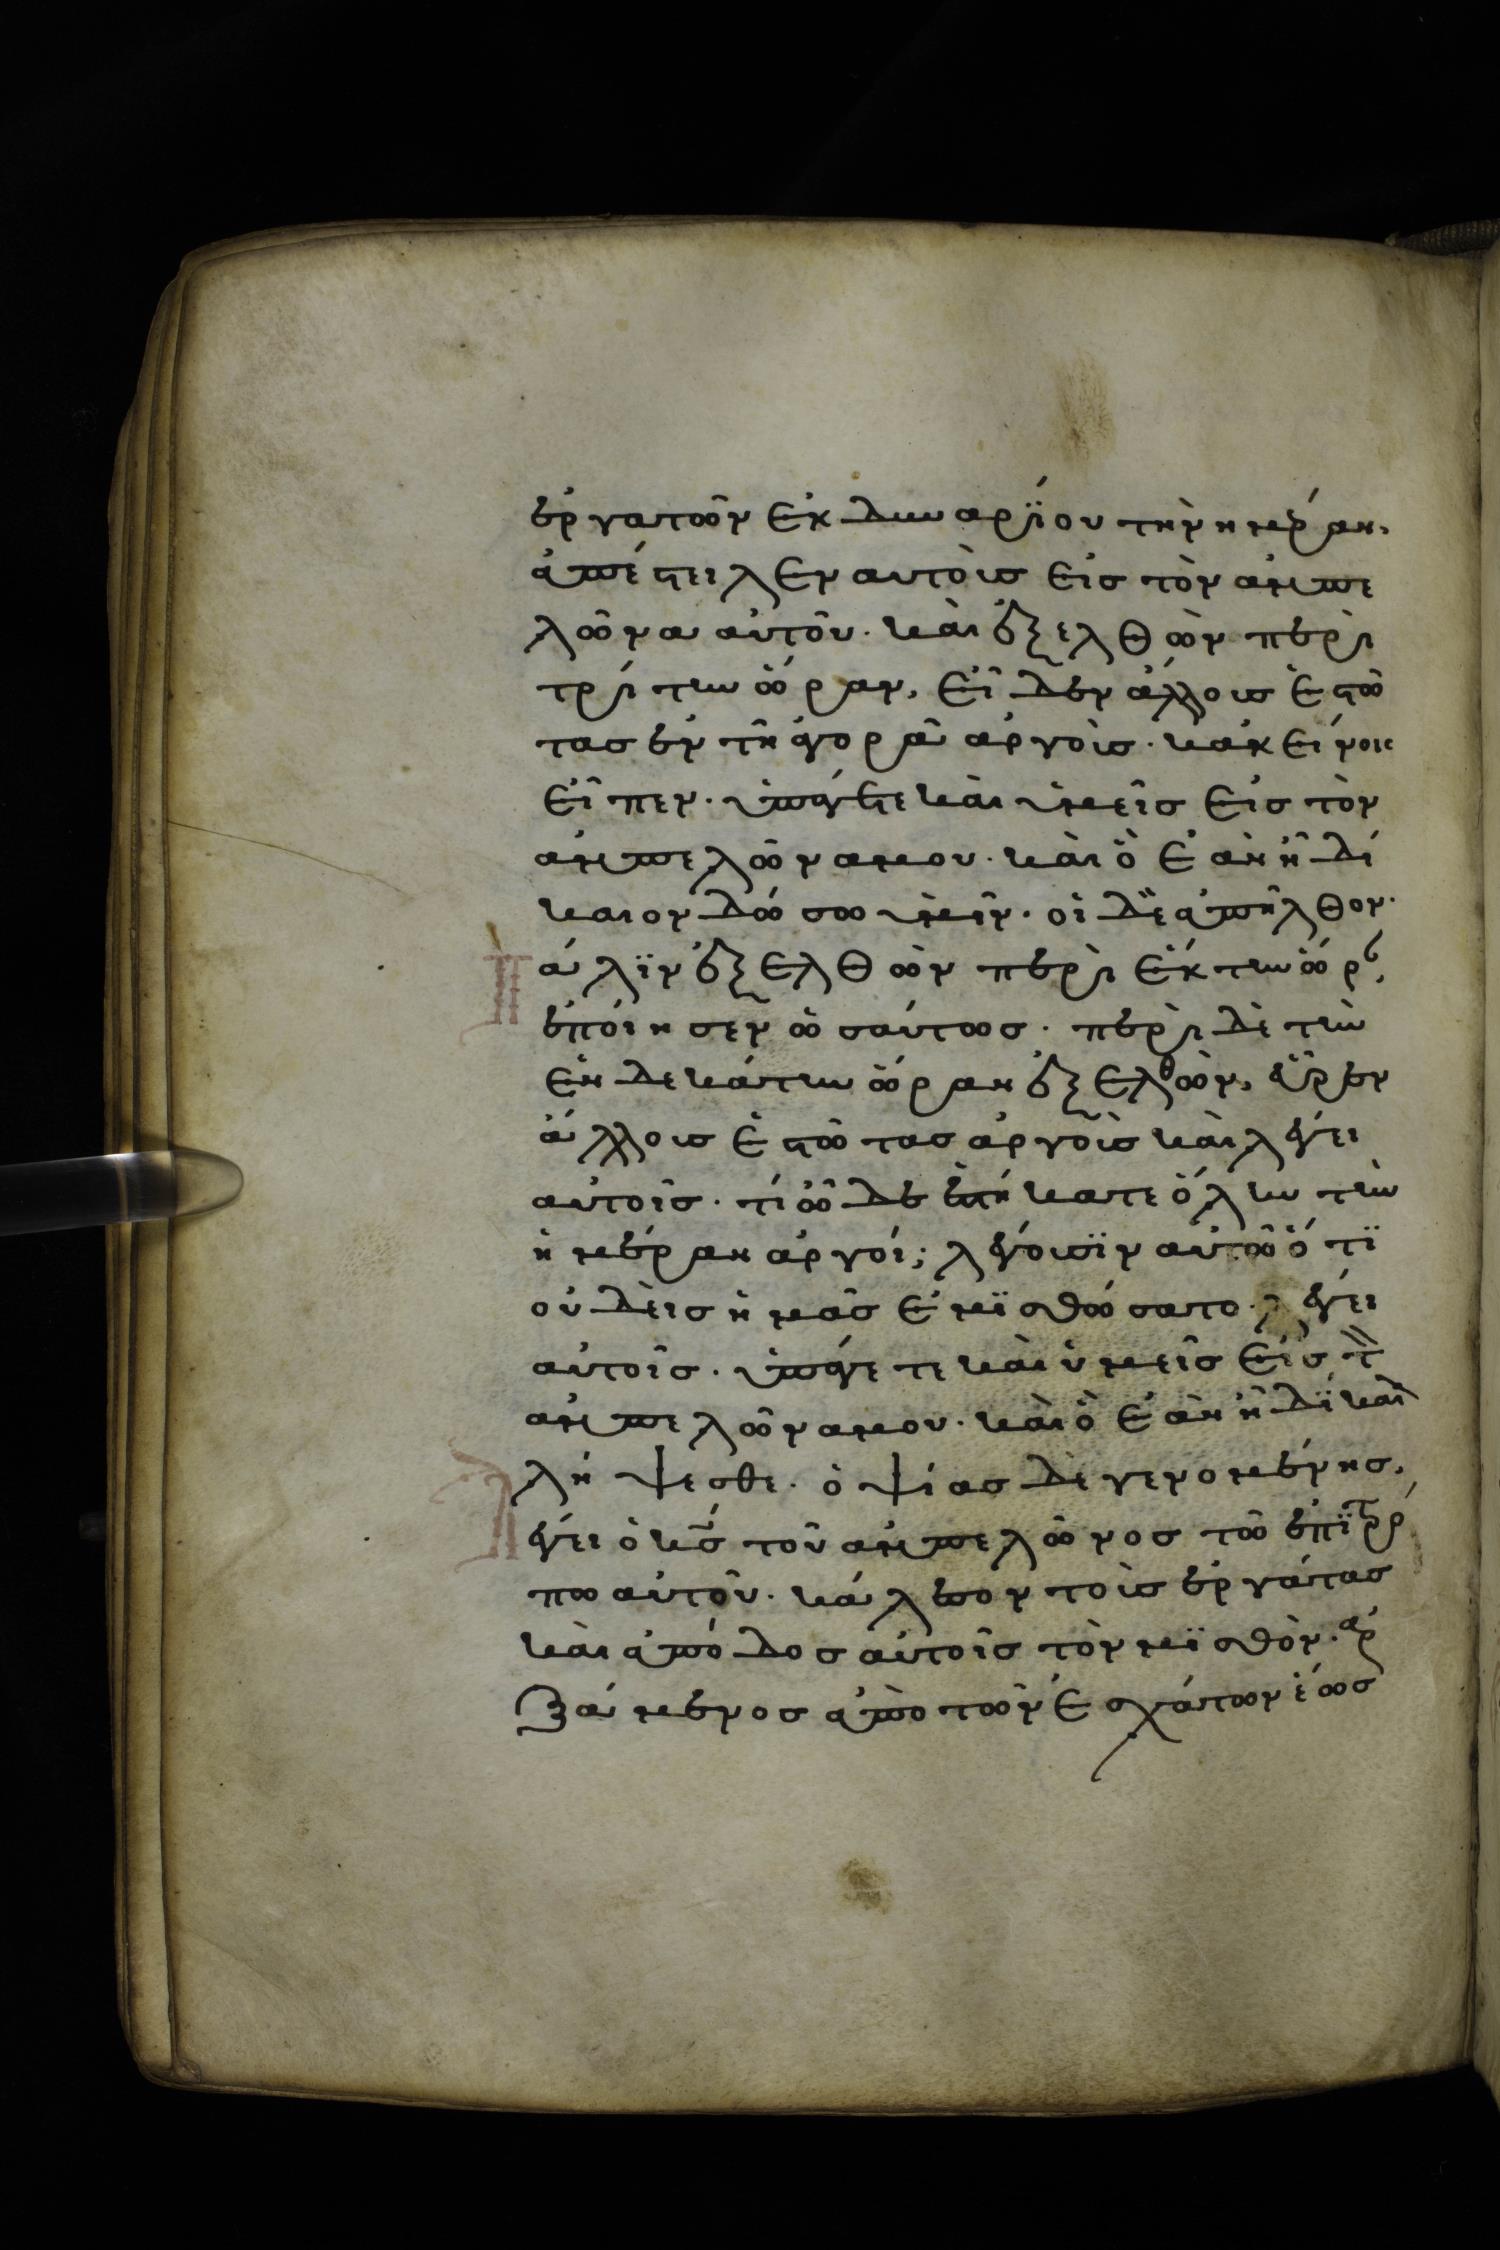 ἐργατῶν ἐκ δηναρΐου τὴν ἡμέραν,
ἀπέστειλεν αυτοὺς εἰς τὸν ἀμπε
λῶνα αὐτοῦ· καὶ ἐξελθὼν περὶ
τρίτην ὥραν, εἶδεν ἄλλους ἑστῶ
τας ἐν τῆ ἀγορᾶ ἀργοὺς· κακείνοις
εἶπεν· ὑπάγετε καὶ ὑμεῖς εἰς τὸν
ἀμπελῶνα μου· καὶ ὃ ἐὰν ἦ δί
καιον δώσω ὑμῖν· οἱ δὲ ἀπῆλθον·
Πάλϊν ἐξελθὼν περὶ ἕκτην ὥρ
ἐποίησεν ὡσαύτως· περὶ δὲ τὴν
ἑνδεκάτην ὥραν ἐξελθὼν, εὗρεν
ἄλλους ἑστῶτας ἀργοὺς καὶ λέγει
αὐτοῖς· τί ὧδε ἑστήκατε ὅλην τὴν
ἡμέραν ἀργοί; λέγουσϊν αὐτῶ ὅτϊ
οὐδεὶς ἡμᾶς ἐμϊσθώσατο· λέγει
αὐτοῖς· ὑπάγετε καὶ ὑμεῖς εἰς τ
ἀμπελῶνα μου· καὶ ὃ ἐὰν ἦ δίκαι
λήψεσθε· ὀψίας δὲ γενομένης,
Λέγει ὁ κς τοῦ ἀμπελῶνος τῶ ἐπϊτρό
πω αὐτοῦ· κάλεσον τοὺς ἐργάτας
καὶ ἀπόδος αὐτοῖς τὸν μϊσθὸν· ἀρ
ξάμενος ἀπὸ τῶν ἐσχάτων ἕως